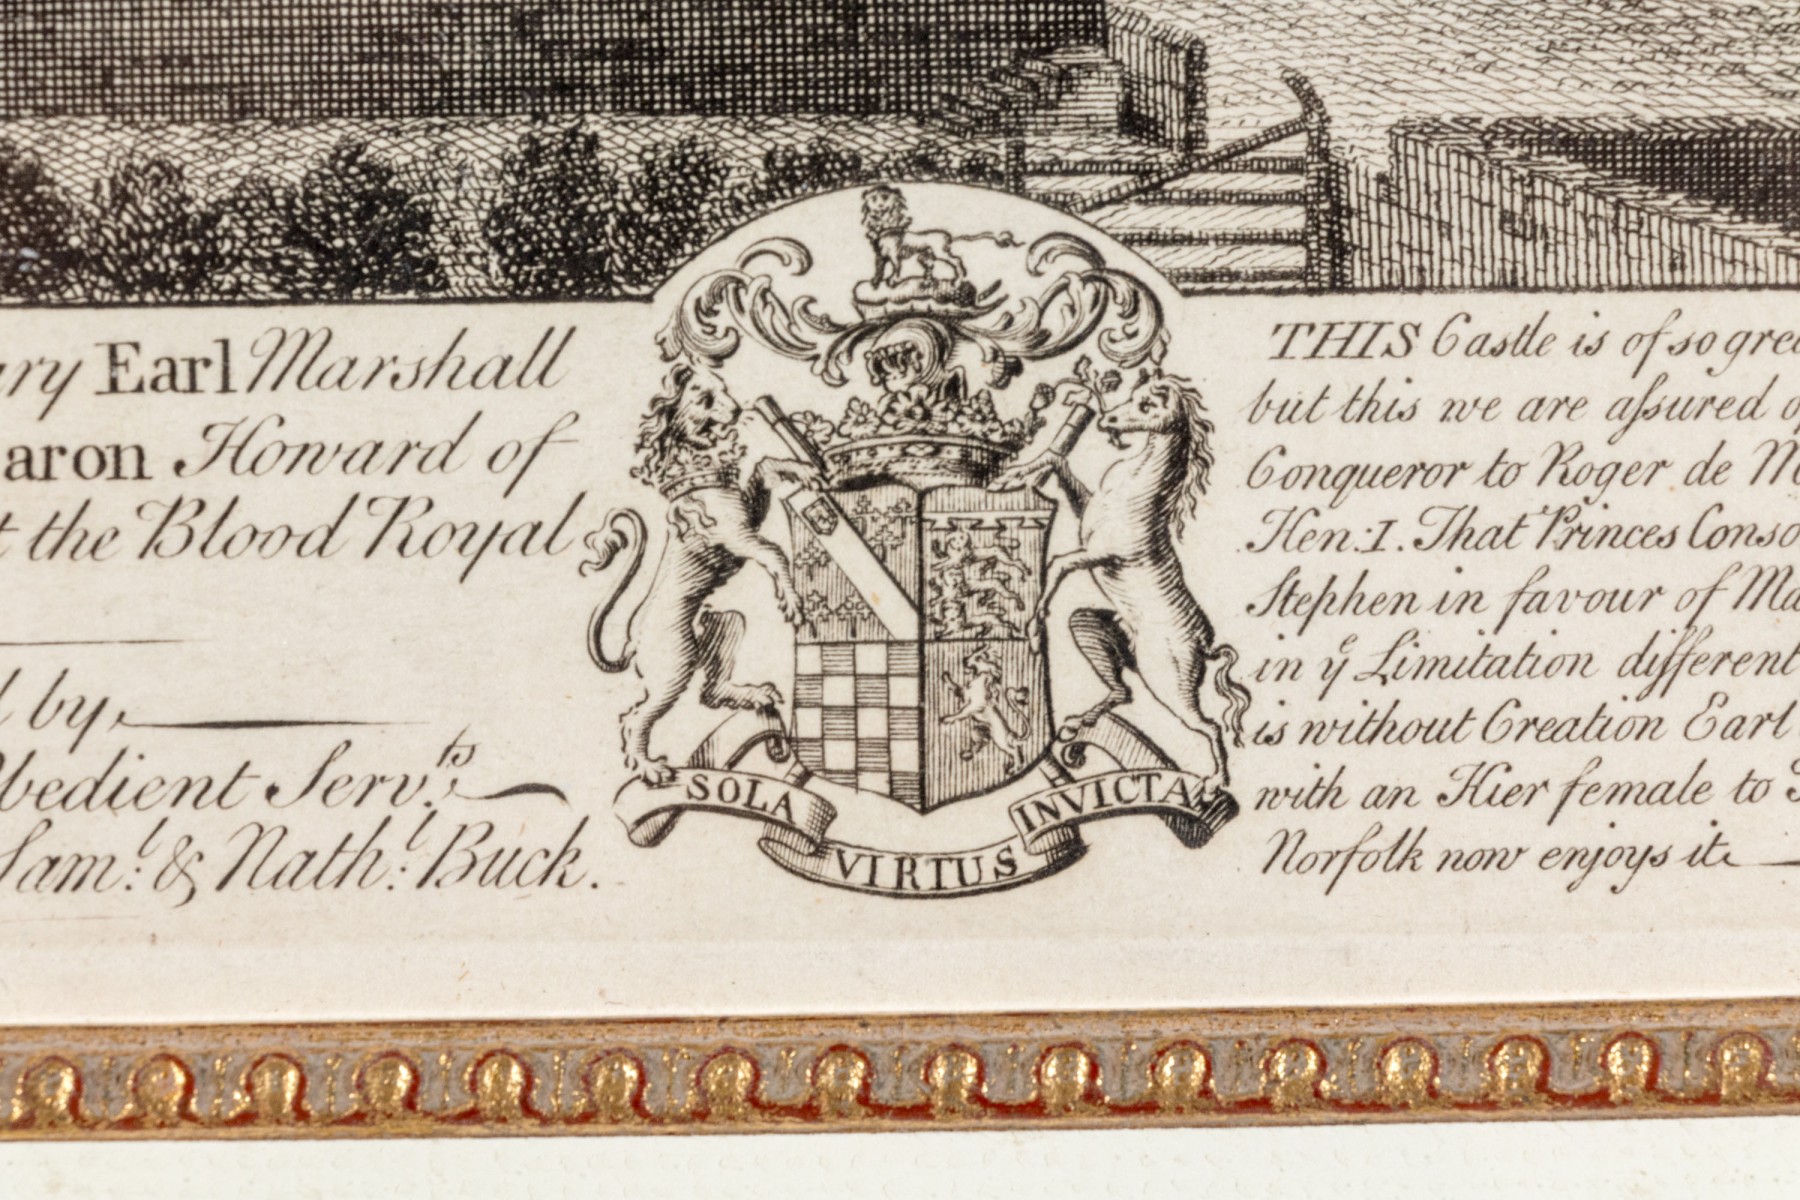 Earl Marshall
Howard of
the Blood Royal
by,
Obedient Serv.ts
Sam.l & Nath.l Buck.
SOLA
VIRTUS
INVICTA
THIS Castle is of so
but this we are assured
Conqueror to Roger de
Hen: I. That Princes
Stephen in favour of
in ye Limitation different
is without Creation Earl
with an Hier female to
Norfolk now enjoys it.